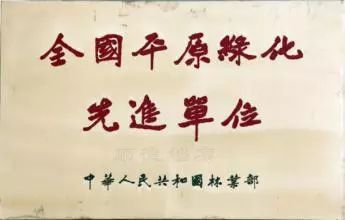 全國平原綠化
先進單位
中華人民共和國林業部